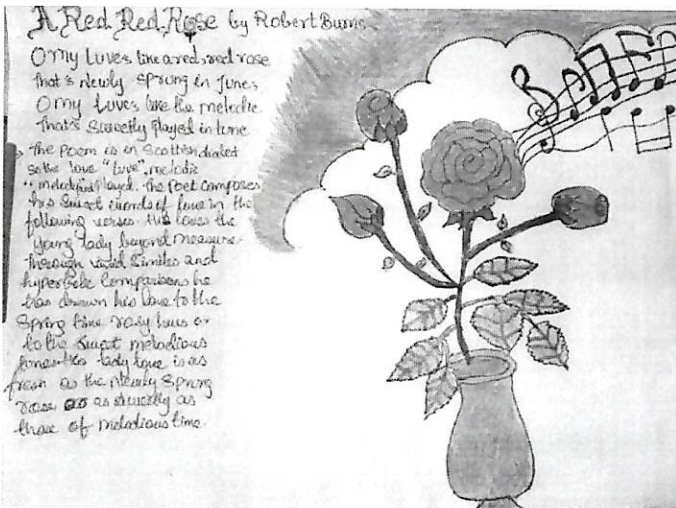 A Red, Red, Rose by Robert Burns
O my Luves like a red, red rose
that's newly sprung in June,
O my Luves like the melodie
that's sweetly played in tune
The poem is in Scottish dialect
so the love "luve", melodie
" melody played. The Poet composes
his sweet words of love in the
following verses. He loves the
young lady beyond measure.
Through vivid similes and
hyperbolic comparisons he
has drawn his love to the
Spring time rosy hues or
to the sweet melodious
tones. His lady love is as
fresh as the newly sprung
rose as sweetly as
those of melodious time.